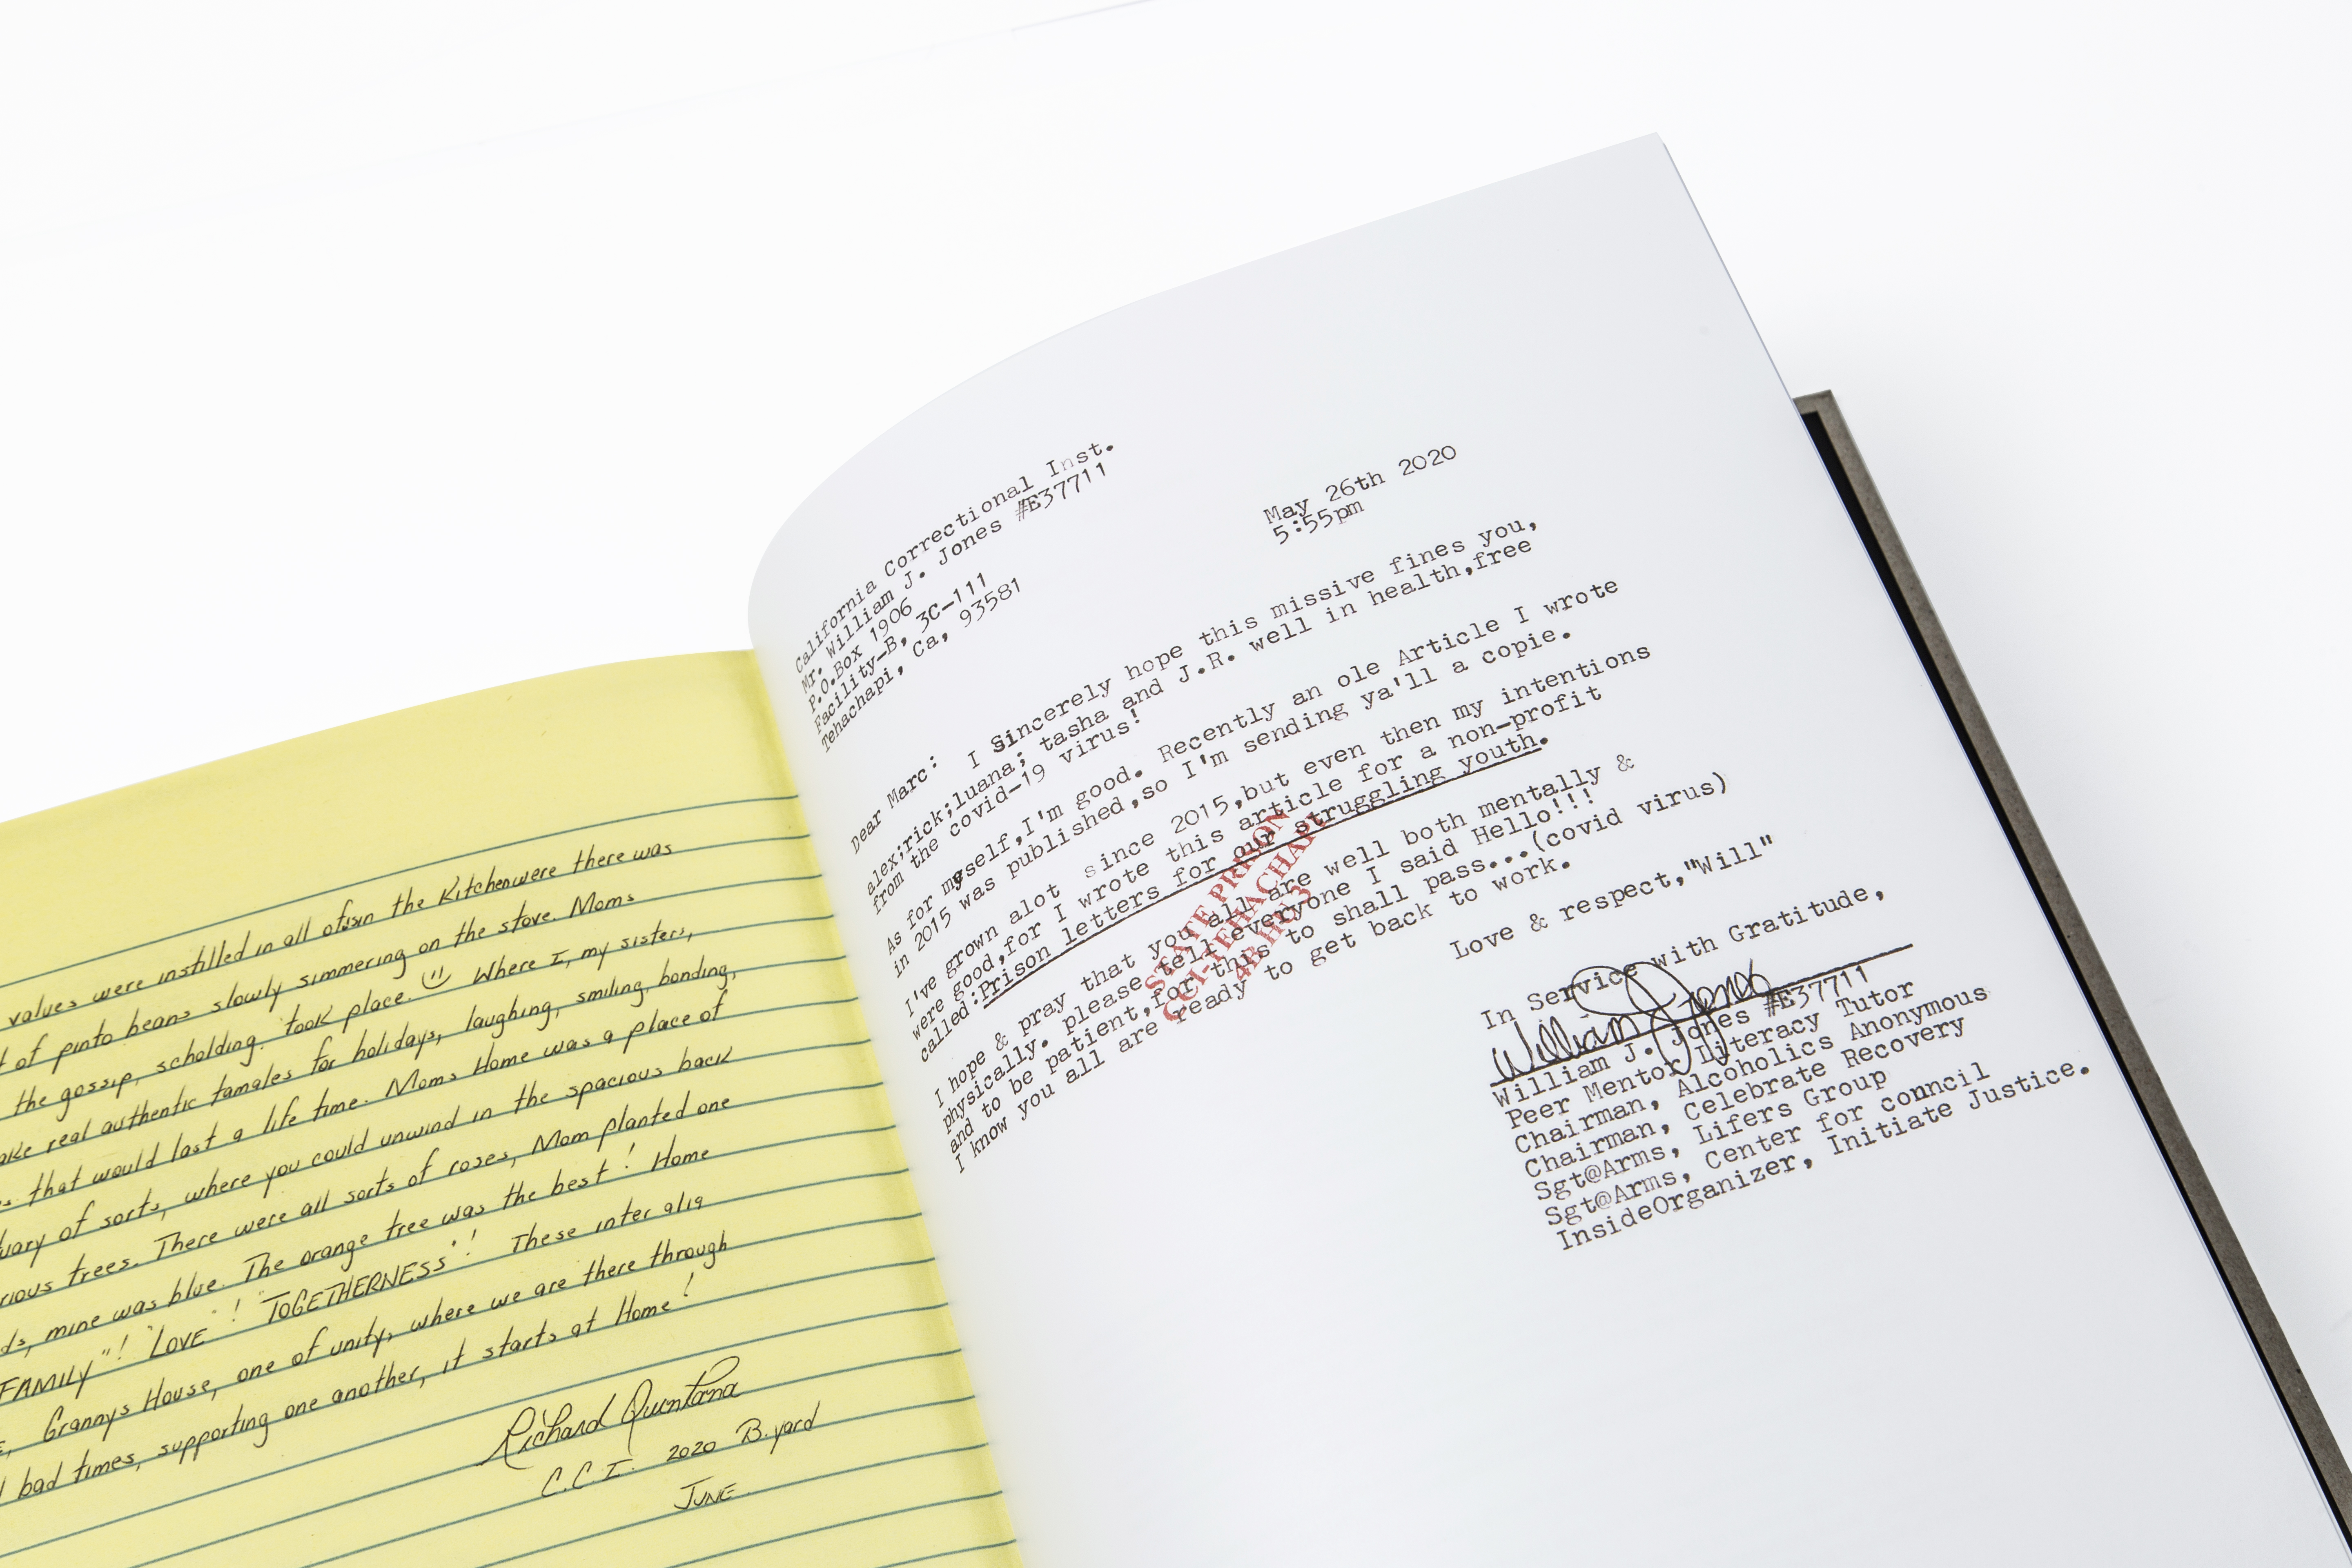 values were instilled in all of us in the Kitchen were there was
of pinto beans slowly simmering on the stove. Moms
the gossip, scholding, took place. Where I, my sisters,
real authentic tamales for holidays, laughing, smiling, bonding,
that would last a life time. Moms Home was a place of
of sorts, where you could unwind in the spacious back
trees. There were all sorts of roses, Mom planted one
mine was blue. The orange tree was the best! Home
FAMILY"! "LOVE"! "TOGETHERNESS"! These inter alia
Grannys House, one of unity, where we are there through
bad times, supporting one another, it starts at Home!
Richard Quintana
C.C.I. 2020 B.yard
JUNE
California Correctional Inst.
Mr. William J. Jones #E37711
P.O.Box 1906
Facility-B, 3C-111
Tehachapi, Ca, 93581
May 26th 2020
5:55pm
Dear Marc: I Sincerely hope this missive fines you,
alex;rick;luana; tasha and J.R. well in health,free
from the covid-19 virus!
As for myself,I'm good. Recently an ole Article I wrote
in 2015 was published,so I'm sending ya'll a copie.
I've grown alot since 2015,but even then my intentions
were good,for I wrote this article for a non-profit
called:Prison letters for our struggling youth.
I hope & pray that you all are well both mentally &
physically. please tell everyone I said Hello!!!
and to be patient,for this to shall pass...(covid virus)
I know you all are ready to get back to work.
STATE PRISON
CCI-TEHACHAPI
4B HU 3
Love & respect,"Will"
In Service with Gratitude,
William J. Jones
William J. Jones #E37711
Peer Mentor Literacy Tutor
Chairman, Alcoholics Anonymous
Chairman, Celebrate Recovery
Sgt@Arms, Lifers Group
Sgt@Arms, Center for council
InsideOrganizer, Initiate Justice.